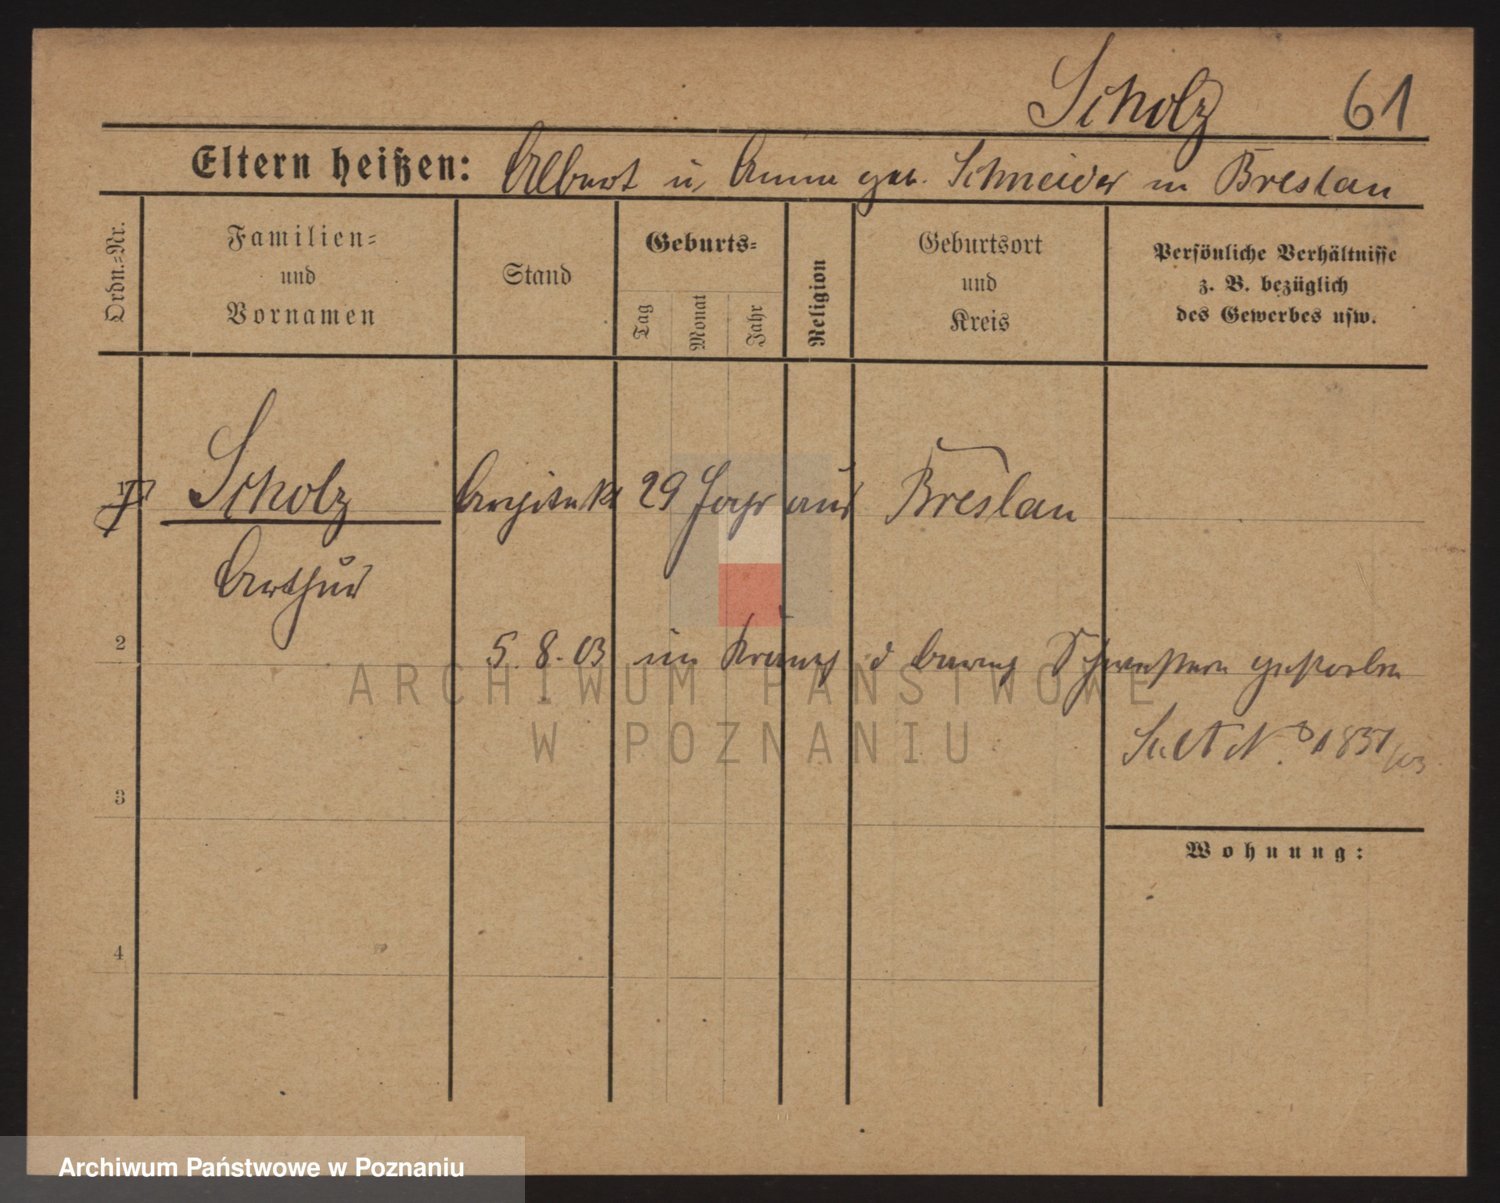 Scholz 61
Eltern heißen: Albert u. Anna geb. Schneider in Breslau
Ordn.-Nr.
Familien-
und
Vornamen
Stand
Geburts-
Tag
Monat
Jahr
Religion
Geburtsort
und
Kreis
Persönliche Verhältnisse
z. B. bezüglich
des Gewerbes usw.
1 † Scholz Architekt 29 Jahr aus Breslau
Arthur
2
5. 8. 03 im Krankh d barmh Schwestern gestorben
No 1851/03
3
Wohnung:
4
ARCHIWUM PAŃSTWOWE
W POZNANIU
Archiwum Państwowe w Poznaniu